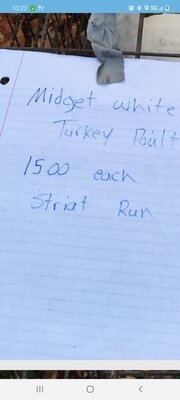 10:22
5G
Midget white
Turkey Poult
1500 each
Striat Run